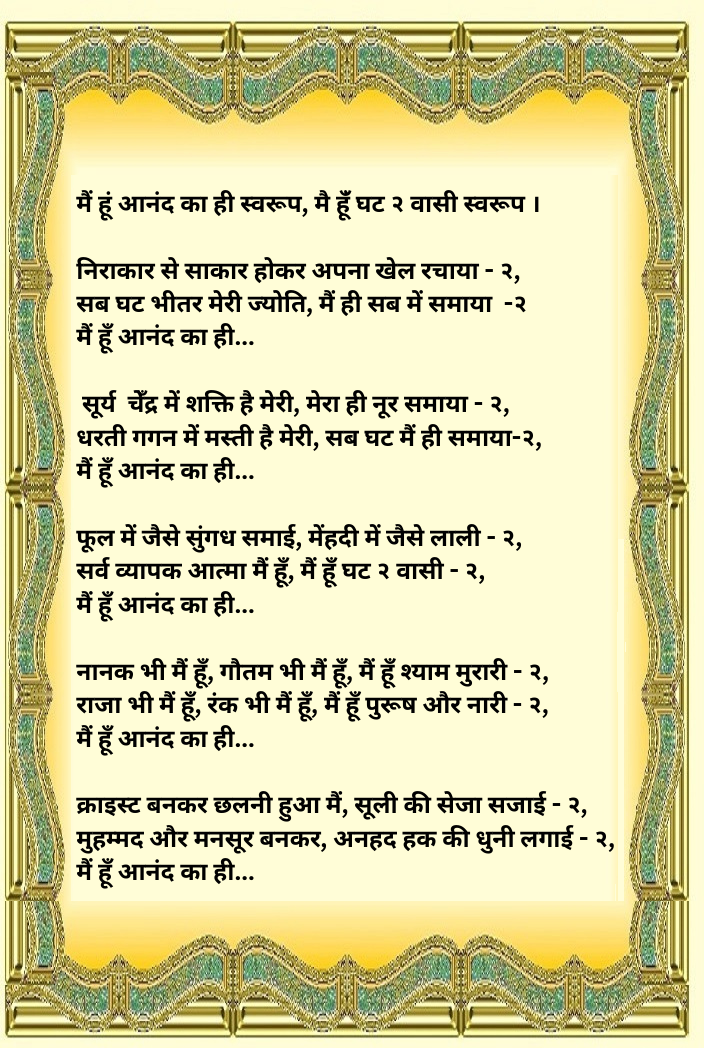 मैं हूं आनंद का ही स्वरूप, मै हूँ घट २ वासी स्वरूप ।
निराकार से साकार होकर अपना खेल रचाया - २,
सब घट भीतर मेरी ज्योति, मैं ही सब में समाया -२
मैं हूँ आनंद का ही...
सूर्य चेँद्र में शक्ति है मेरी, मेरा ही नूर समाया - २,
धरती गगन में मस्ती है मेरी, सब घट मैं ही समाया-२,
मैं हूँ आनंद का ही...
फूल में जैसे सुंगध समाई, मेंहदी में जैसे लाली - २,
सर्व व्यापक आत्मा मैं हूँ, मैं हूँ घट २ वासी - २,
मैं हूँ आनंद का ही...
नानक भी मैं हूँ, गौतम भी मैं हूँ, मैं हूँ श्याम मुरारी - २,
राजा भी मैं हूँ, रंक भी मैं हूँ, मैं हूँ पुरूष और नारी - २,
मैं हूँ आनंद का ही...
क्राइस्ट बनकर छलनी हुआ मैं, सूली की सेजा सजाई - २,
मुहम्मद और मनसूर बनकर, अनहद हक की धुनी लगाई - २,
मैं हूँ आनंद का ही...